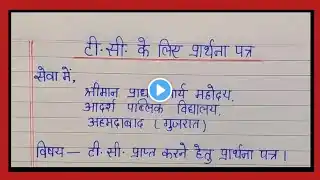 टी॰सी॰ के लिए प्रार्थना पत्र
सेवा में,
श्रीमान प्रधानाचार्य महोदय,
आदर्श पब्लिक विद्यालय,
अहमदाबाद (गुजरात)
विषय — टी॰सी॰ प्राप्त करने हेतु प्रार्थना पत्र।